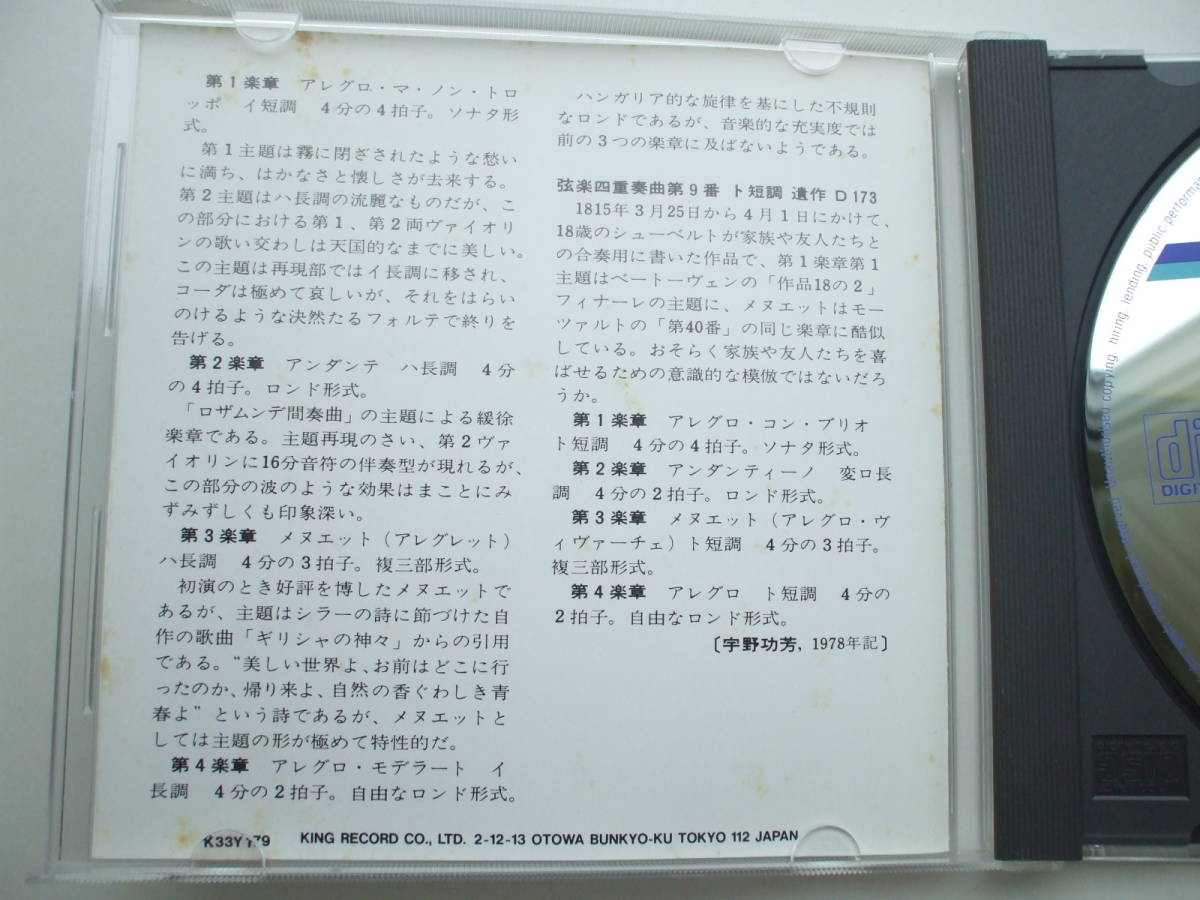 第1楽章　アレグロ・マ・ノン・トロ
ッポ　イ短調　4分の4拍子。ソナタ形
式。
　第1主題は霧に閉ざされたような愁い
に満ち、はかなさと懐しさが去来する。
第2主題はハ長調の流麗なものだが、こ
の部分における第1、第2両ヴァイオリ
ンの歌い交わしは天国的なまでに美しい。
この主題は再現部ではイ長調に移され、
コーダは極めて哀しいが、それをはらい
のけるような決然たるフォルテで終りを
告げる。
第2楽章　アンダンテ　ハ長調　4分
の4拍子。ロンド形式。
　「ロザムンデ間奏曲」の主題による緩徐
楽章である。主題再現のさい、第2ヴァ
イオリンに16分音符の伴奏型が現れるが、
この部分の波のような効果はまことにみ
ずみずしくも印象深い。
第3楽章　メヌエット（アレグレット）
ハ長調　4分の3拍子。複三部形式。
　初演のとき好評を博したメヌエットで
あるが、主題はシラーの詩に節づけた自
作の歌曲「ギリシャの神々」からの引用
である。“美しい世界よ、お前はどこに行
ったのか、帰り来よ、自然の香ぐわしき青
春よ”という詩であるが、メヌエットと
しては主題の形が極めて特性的だ。
第4楽章　アレグロ・モデラート　イ
長調　4分の2拍子。自由なロンド形式。
　ハンガリア的な旋律を基にした不規則
なロンドであるが、音楽的な充実度では
前の3つの楽章に及ばないようである。
弦楽四重奏曲第9番　ト短調　遺作　D173
　1815年3月25日から4月1日にかけて、
18歳のシューベルトが家族や友人たちと
の合奏用に書いた作品で、第1楽章第1
主題はベートーヴェンの「作品18の2」
フィナーレの主題に、メヌエットはモー
ツァルトの「第40番」の同じ楽章に酷似
している。おそらく家族や友人たちを喜
ばせるための意識的な模倣ではないだろ
うか。
第1楽章　アレグロ・コン・ブリオ
ト短調　4分の4拍子。ソナタ形式。
第2楽章　アンダンティーノ　変ロ長
調　4分の2拍子。ロンド形式。
第3楽章　メヌエット（アレグロ・ヴ
ィヴァーチェ）ト短調　4分の3拍子。
複三部形式。
第4楽章　アレグロ　ト短調　4分の
2拍子。自由なロンド形式。
〔宇野功芳，1978年記〕
K33Y 179　KING RECORD CO., LTD. 2-12-13 OTOWA BUNKYO-KU TOKYO 112 JAPAN
copying, hiring, lending, public